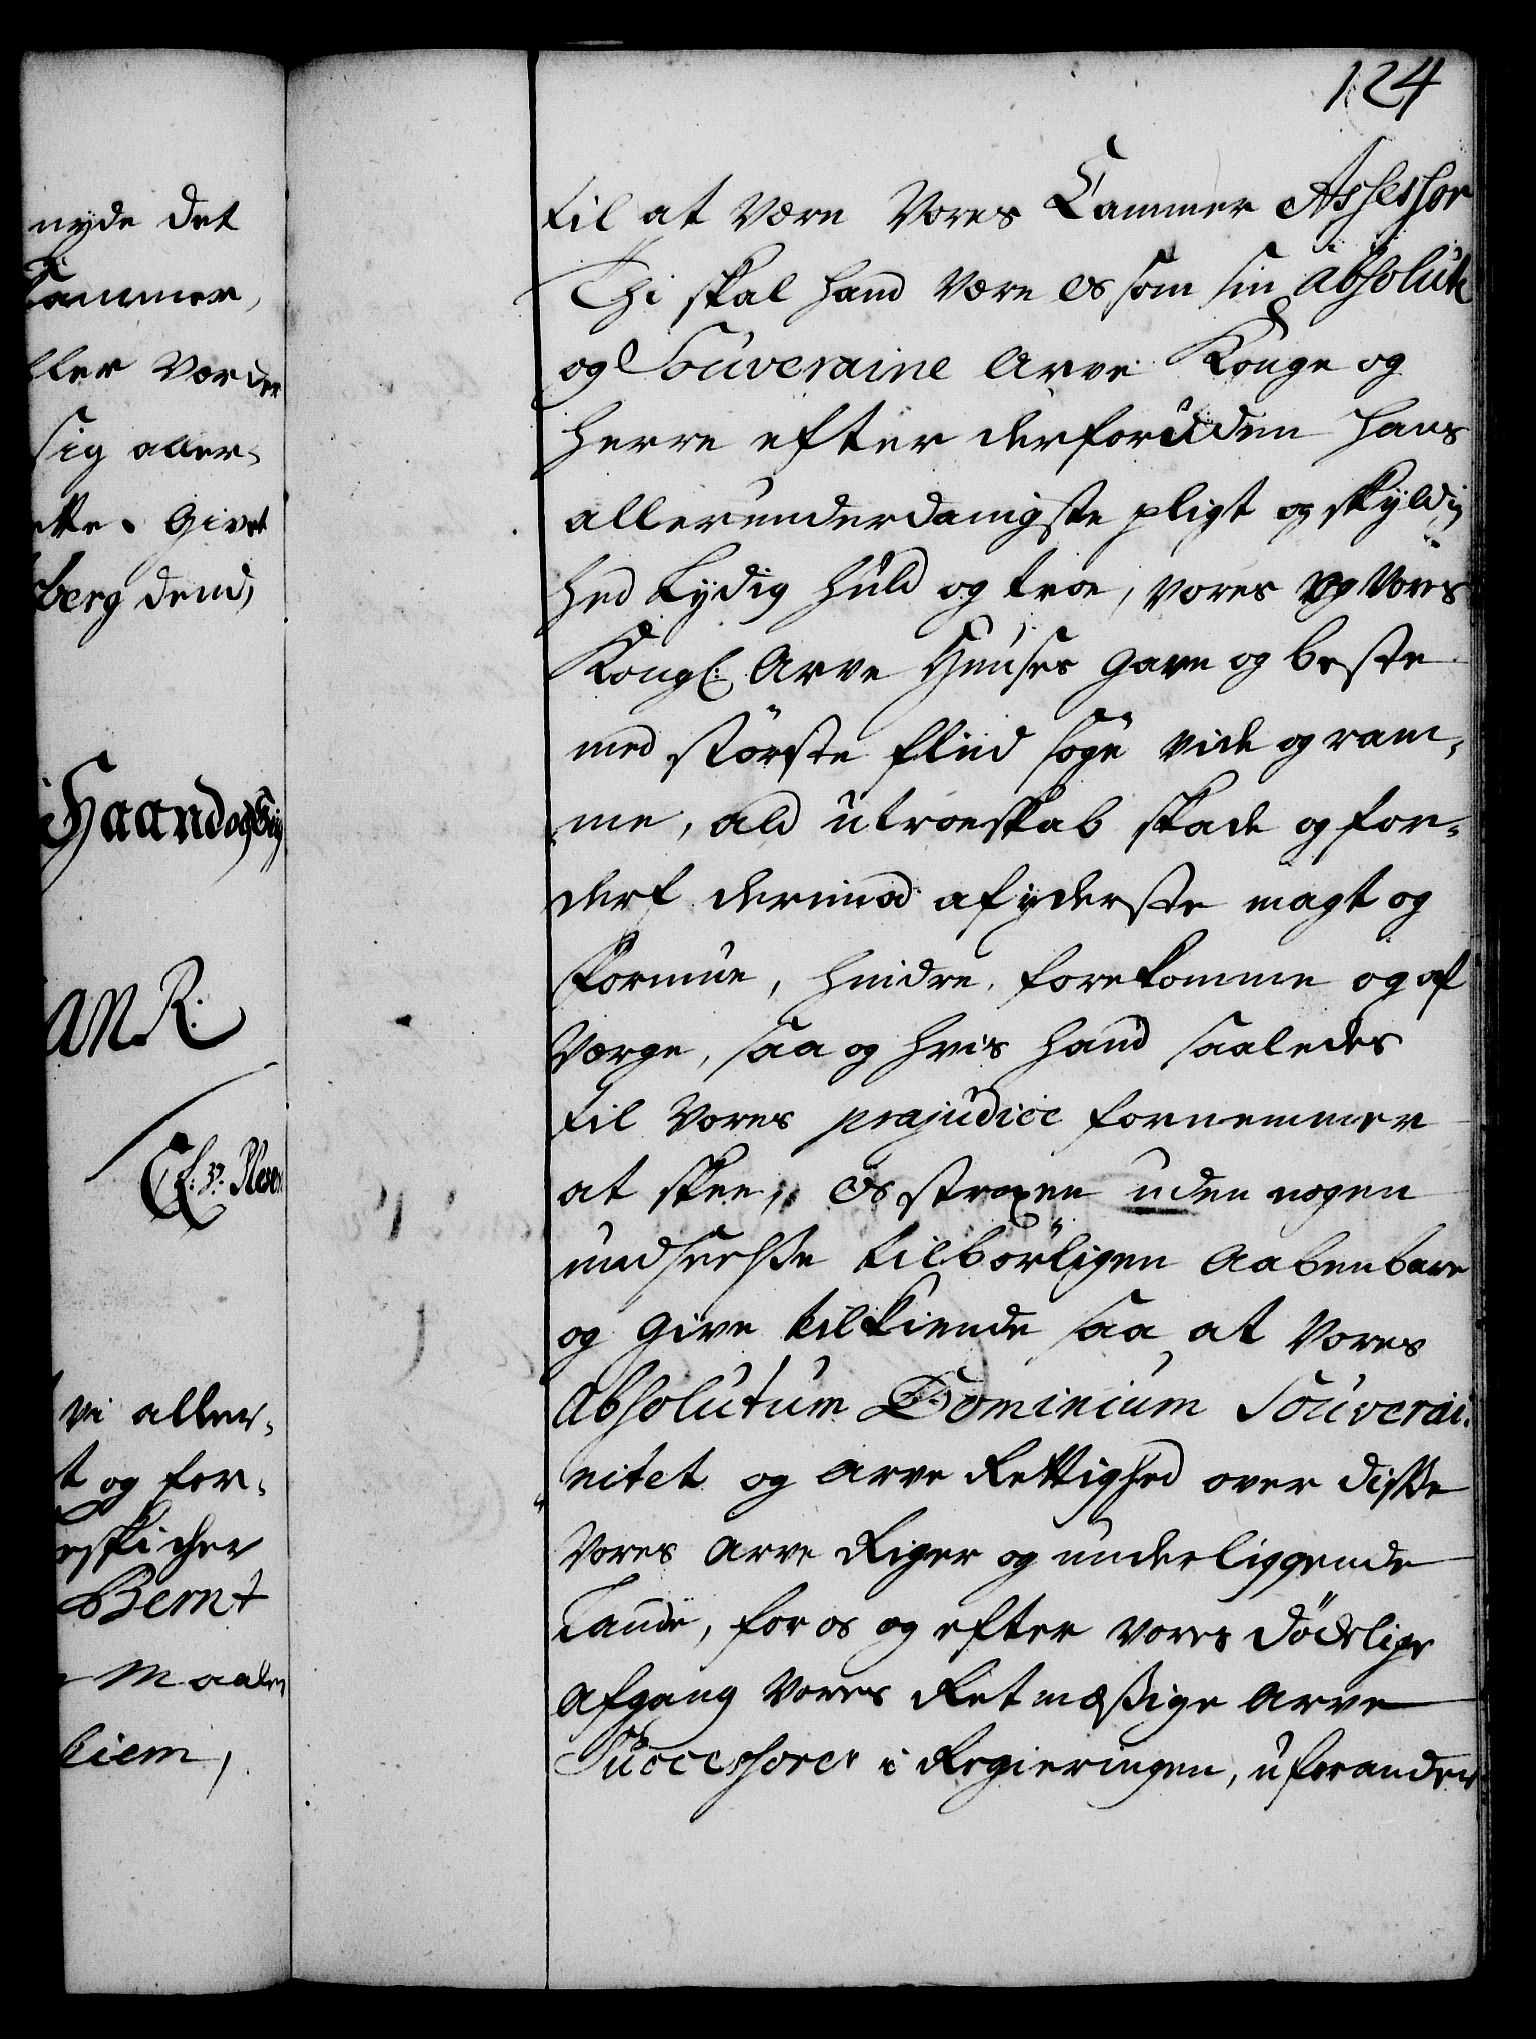 124
nyde det
Cammer,
ller Vorder
sig aller-
ette. Givet
berg dend,
Haand og Sig
AN R.
vi aller-
t og for-
eskicher
Bernt
Maaler
liem,
til at være Vores Cammer Assessor
Thi skal hand være os som sin absolute
og Souveraine Arve Konge og
Herre efter derforuden hans
allerunderdanigste pligt og skyldig
hed lydig huld og troe, vores og Vores
Kongl: Arve Huuses gavn og beste
med störste fliid söge vide og ram-
me, ald utroeskab skade og for-
derf derimod af yderste magt og
formue, hindre, forekomme og af
Værge, saa og hvis hand saaledes
til Vores præjudice fornemmer
at skee, Os straxen uden nogen
undseelse tilbörligen Aabenbare
og give tilkiende saa at Vores
Absolutum Dominium Souverai-
nitet og Arve Rettighed over disse
Vores Arve Riger og underliggende
Lande, for os og efter vores dödelige
Afgang Vores Retmæssige Arve
Successorer i Regieringen, uforander